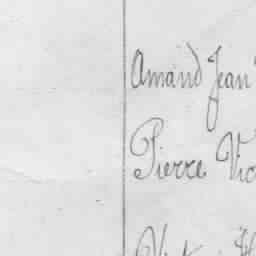 Amand Jean
Pierre Vic